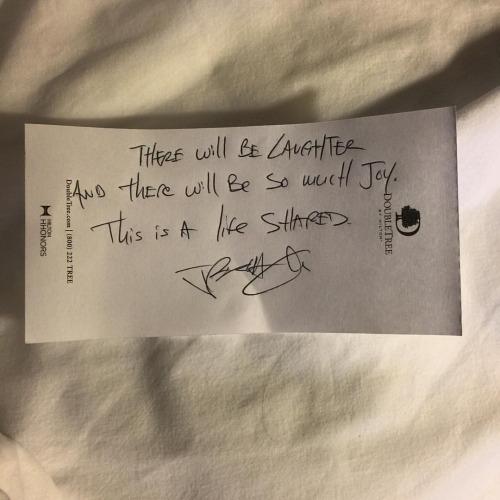 THERE will BE LAUGHTER
AND there will BE so much Joy.
This is A life SHARED.
DOUBLETREE
BY HILTON
DoubleTree.com | (800) 222 TREE
HILTON
HHONORS